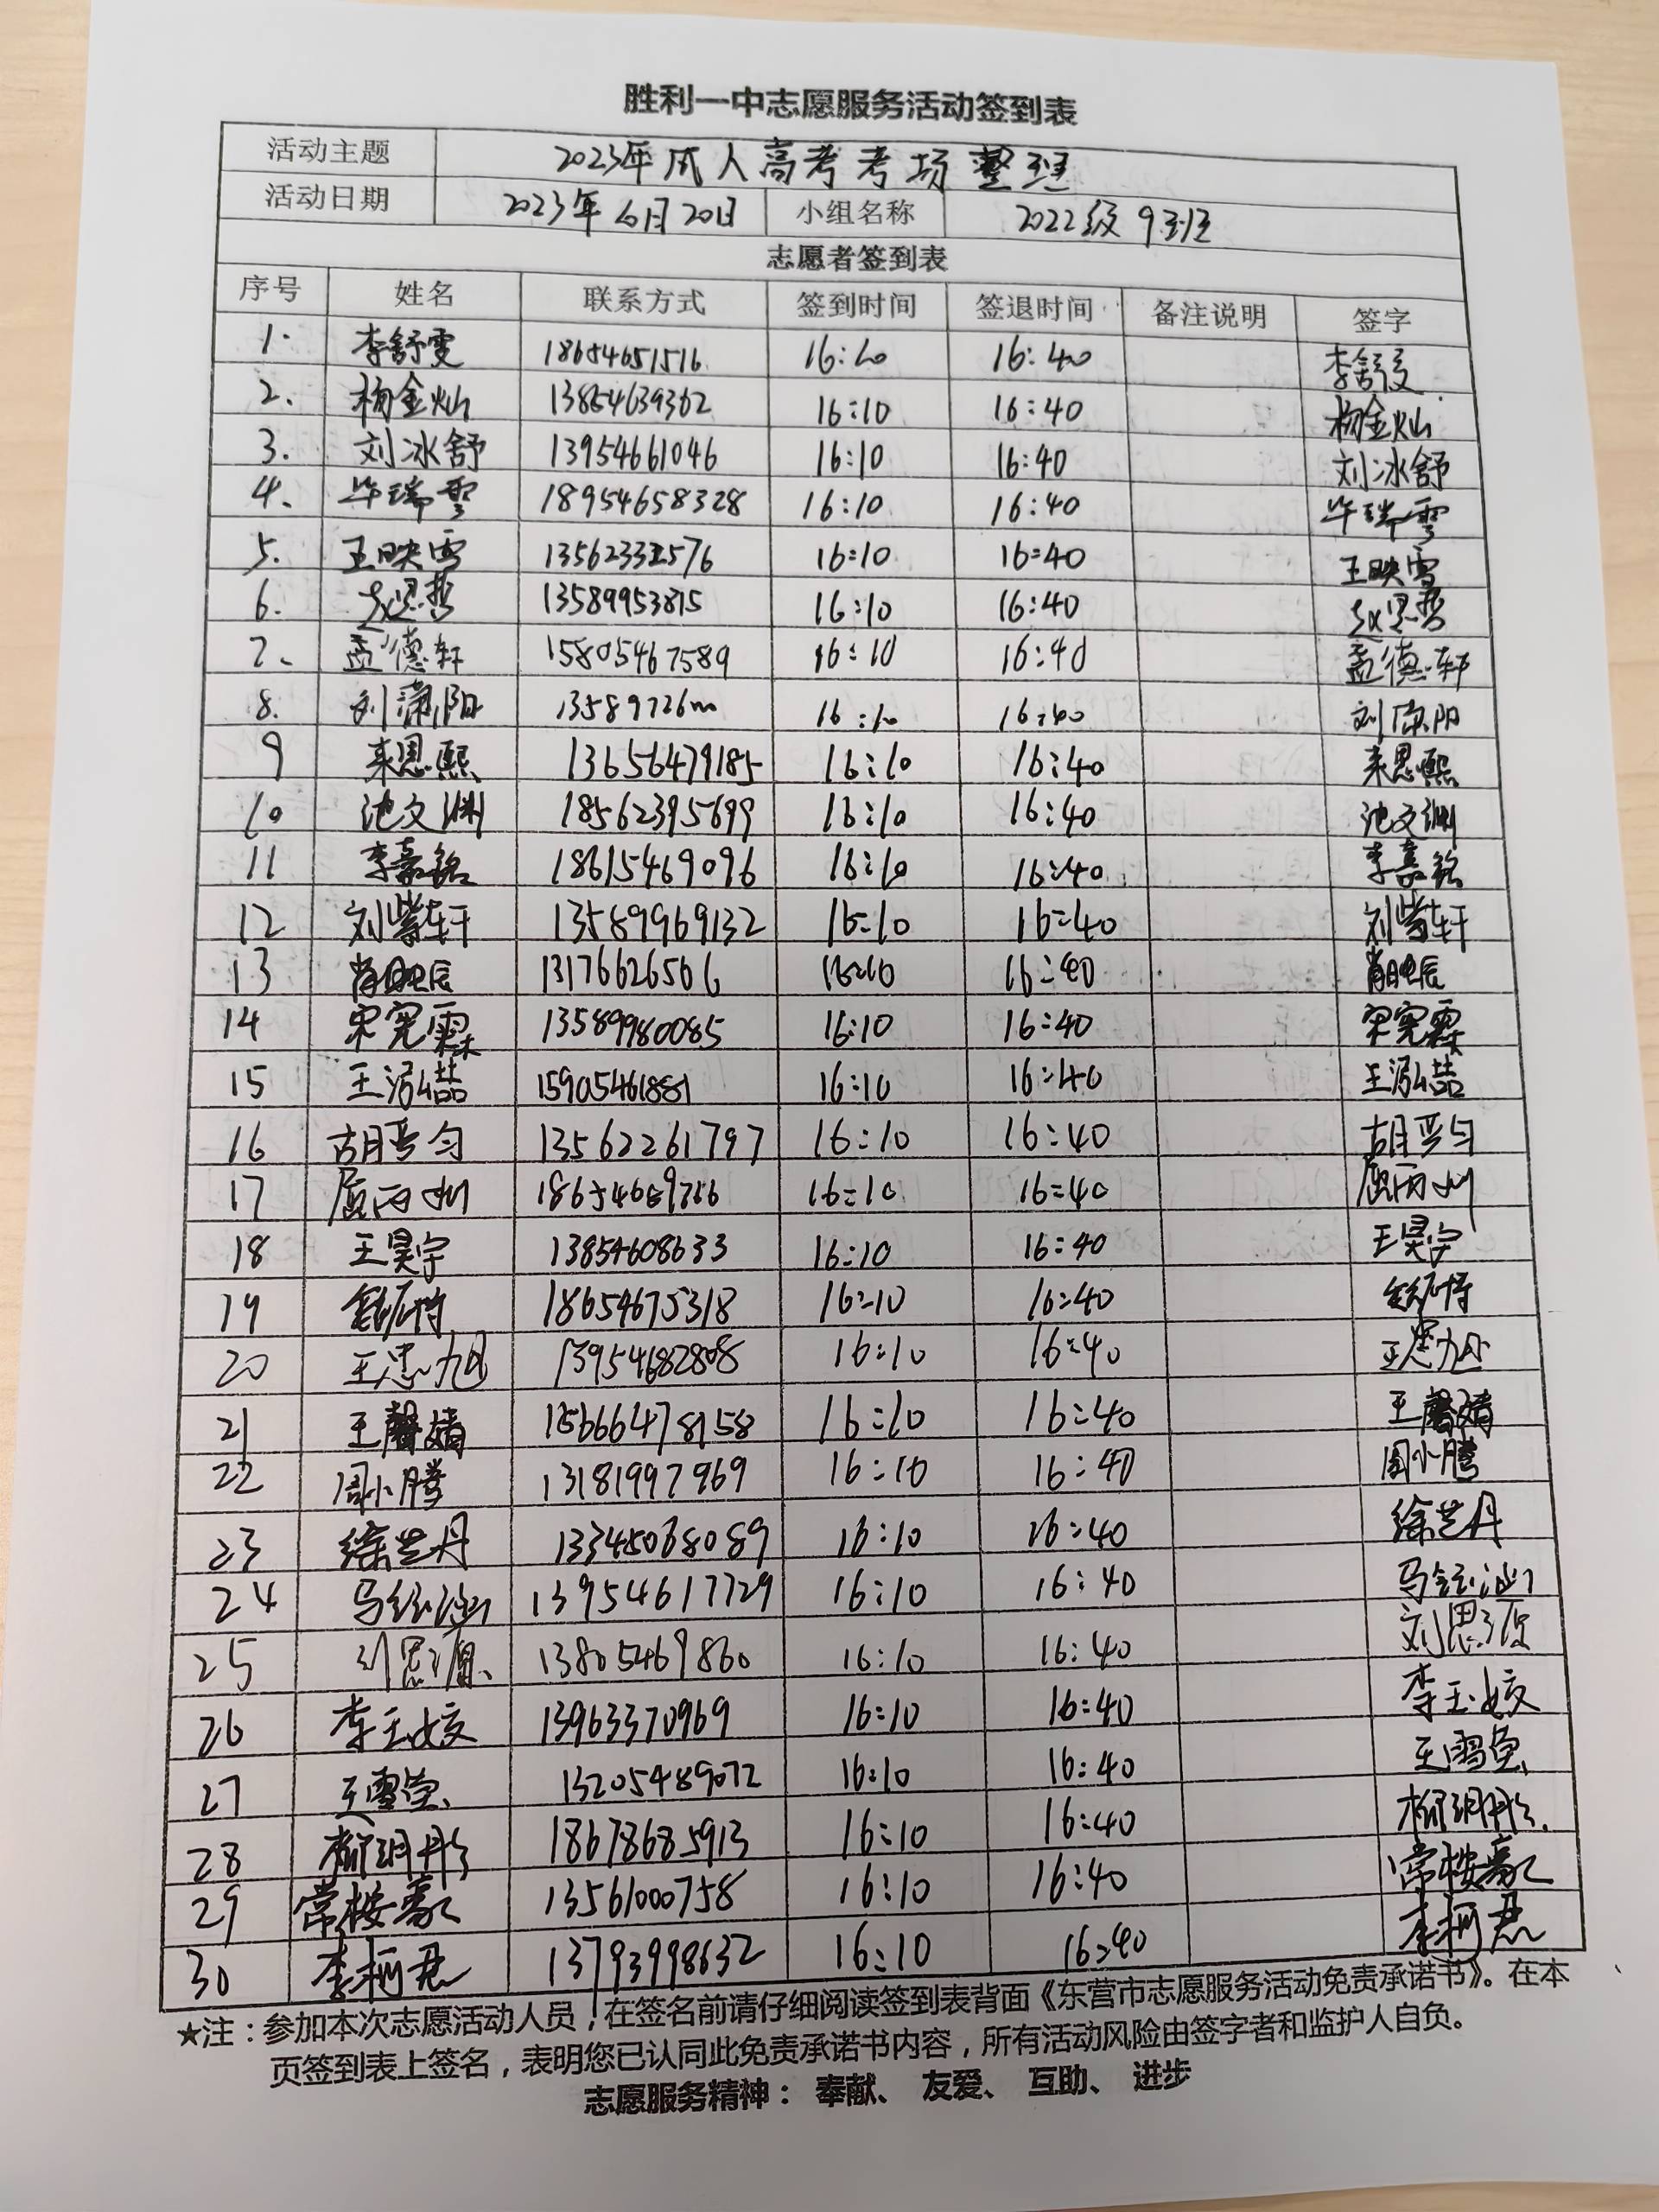 胜利一中志愿服务活动签到表
活动主题 2023年成人高考考场整理
活动日期 2023年6月20日 小组名称 2022级9班
志愿者签到表
序号 姓名 联系方式 签到时间 签退时间 备注说明 签字
1. 李舒雯 18654651516 16:10 16:40 李舒雯
2. 杨金灿 13854639362 16:10 16:40 杨金灿
3. 刘冰舒 13954661046 16:10 16:40 刘冰舒
4. 毕瑞雪 18954658328 16:10 16:40 毕瑞雪
5. 王映雪 16:10 16:40 王映雪
6. 赵思哲 13589953815 16:10 16:40 赵思哲
7. 孟德轩 15805467589 16:10 16:40 孟德轩
8. 刘潇阳 16:10 16:40 刘潇阳
9 来恩熙 13656479185 16:10 16:40 来恩熙
10 池文渊 18562395699 16:10 16:40 池文渊
11 李嘉铭 18615469096 16:10 16:40 李嘉铭
12 刘紫轩 13589969132 16:10 16:40 刘紫轩
13 肖映辰 1317662656 16:10 16:40 肖映辰
14 宋宪霖 13589980085 16:10 16:40 宋宪霖
15 王泓喆 15905461881 16:10 16:40 王泓喆
16 胡晋匀 13562261797 16:10 16:40 胡晋匀
17 雨州 16:10 16:40 雨州
18 王昊宇 13854608633 16:10 16:40 王昊宇
19 18654675318 16:10 16:40
20 王思旭 13954682808 16:10 16:40 王思旭
21 王馨婧 15666478158 16:10 16:40 王馨婧
22 周小腾 13181997969 16:10 16:40 周小腾
23 徐芝丹 13345068089 16:10 16:40 徐芝丹
24 马 13954617729 16:10 16:40 马
25 刘思源 13805469860 16:10 16:40 刘思源
26 李玉姣 13963370969 16:10 16:40 李玉姣
27 王雪莹 13205489072 16:10 16:40 王雪莹
28 柳玥彤 18678685913 16:10 16:40 柳玥彤
29 常桉豪 13561000758 16:10 16:40 常桉豪
30 李柯君 13793998632 16:10 16:40 李柯君
★注：参加本次志愿活动人员，在签名前请仔细阅读签到表背面《东营市志愿服务活动免责承诺书》。在本
页签到表上签名，表明您已认同此免责承诺书内容，所有活动风险由签字者和监护人自负。
志愿服务精神： 奉献、 友爱、 互助、 进步